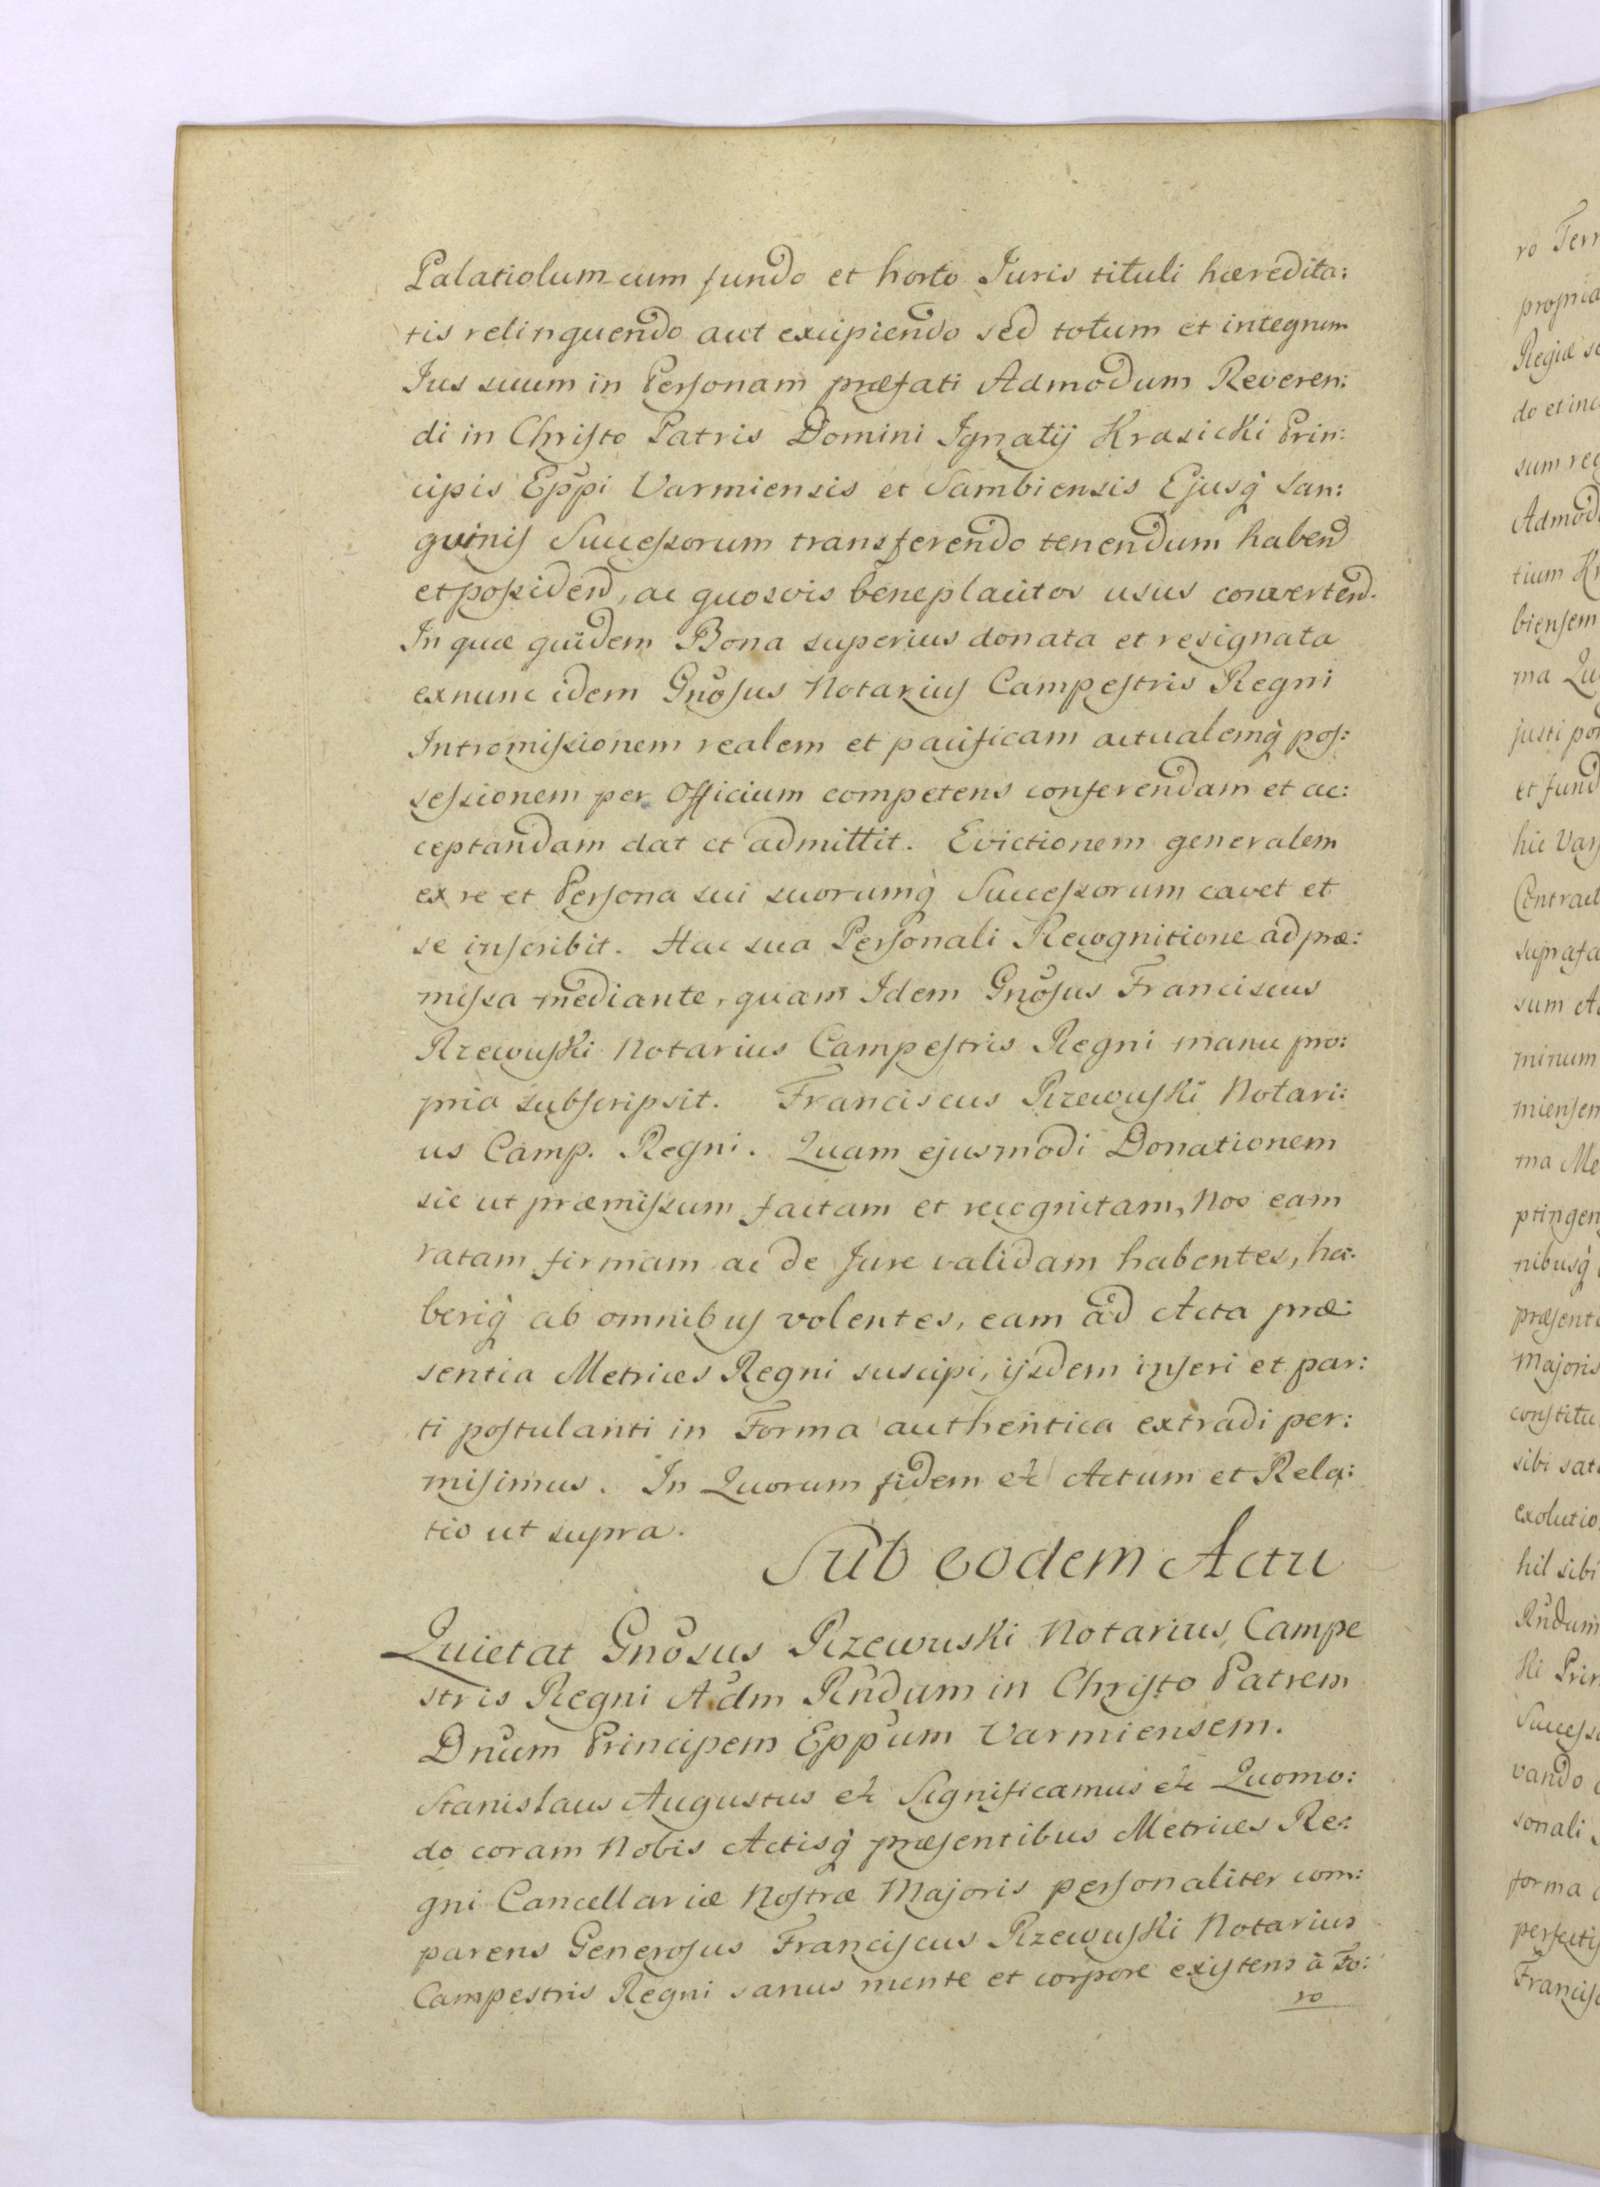 Palatiolum cum fundo et horto Juris tituli hæredita:
tis relinquendo aut excipiendo sed totum et integrum
Jus suum in Personam præfati Admodum Reveren:
di in Christo Patris Domini Ignatij Krasicki Prin:
cipis Eppi Varmiensis et Sambiensis Ejusq̀ San:
guinis Successorum transferendo tenendum habend
et possidend, ac quosvis beneplacitos usus convertend.
In quæ quidem Bona superius donata et resignata
exnunc idem Gnosus Notarius Campestris Regni
Intromissionem realem et pacificam actualemq̀ pos:
sessionem per Officium competens conferendam et ac:
ceptandam dat et admittit. Evictionem generalem
ex re et Persona sui suorumq̀ Successorum cavet et
se inscribit. Hac sua Personali Recognitione ad præ:
missa mediante, quam Idem Gnosus Franciscus
Rzewuski Notarius Campestris Regni manu pro:
pria subscripsit. Franciscus Rzewuski Notari:
us Camp. Regni. Quam ejusmodi Donationem
sic ut præmissum factam et recognitam, Nos eam
ratam firmam ac de Jure validam habentes, ha:
beriq̀ ab omnibus volentes, eam ad Acta præ:
sentia Metrices Regni suscipi, ijsdem inseri et par:
ti postulanti in Forma authentica extradi per:
misimus. In Quorum fidem &c Actum et Rela:
tio ut supra.
Sub eodem Actu
Quietat Gnosus Rzewuski Notarius Campe
stris Regni Adm Rndum in Christo Patrem
Dnum Principem Eppum Varmiensem.
Stanislaus Augustus &c Significamus &c Quomo:
do coram Nobis Actisq̀ præsentibus Metrices Re:
gni Cancellariæ Nostræ Majoris personaliter com:
parens Generosus Franciscus Rzewuski Notarius
Campestris Regni sanus mente et corpore existens à Fo:
ro
ro Terr
propria
Regiæ
do et inc
sum rec
Admod
tium Kr
biensem
ma Qu
justi
et fund
hic Var
Contract
suprafa
sum
minum
miensem
ma Me
ptingen
nibusq̀
præsent
Majoris
constitu
sibi sat
exolutio
hil sibi
Rndum
ki Prin
Success
vando
sonali
forma
perfectis
Francisc